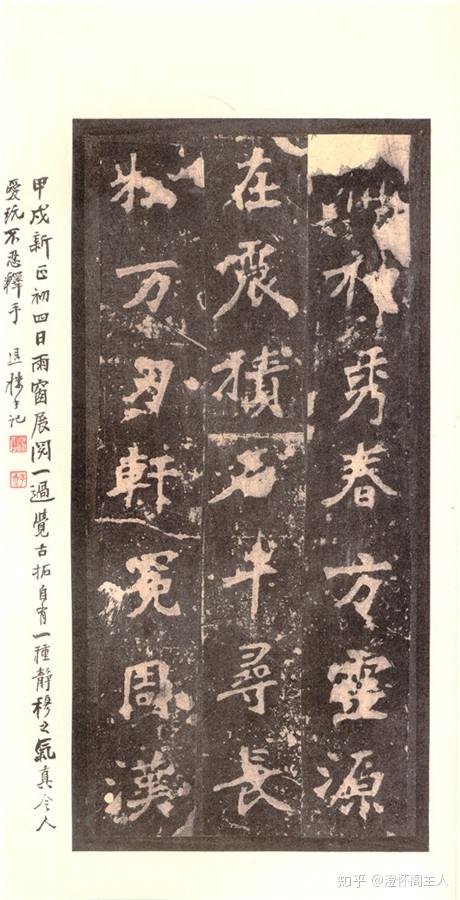 神秀春方靈源
在震積石千尋長
松万刃軒冕周漢
甲戌新正初四日雨窗展閱一過覺古拓自有一種靜穆之氣真令人
愛玩不忍釋手 退樓記
知乎 @澄怀阁主人